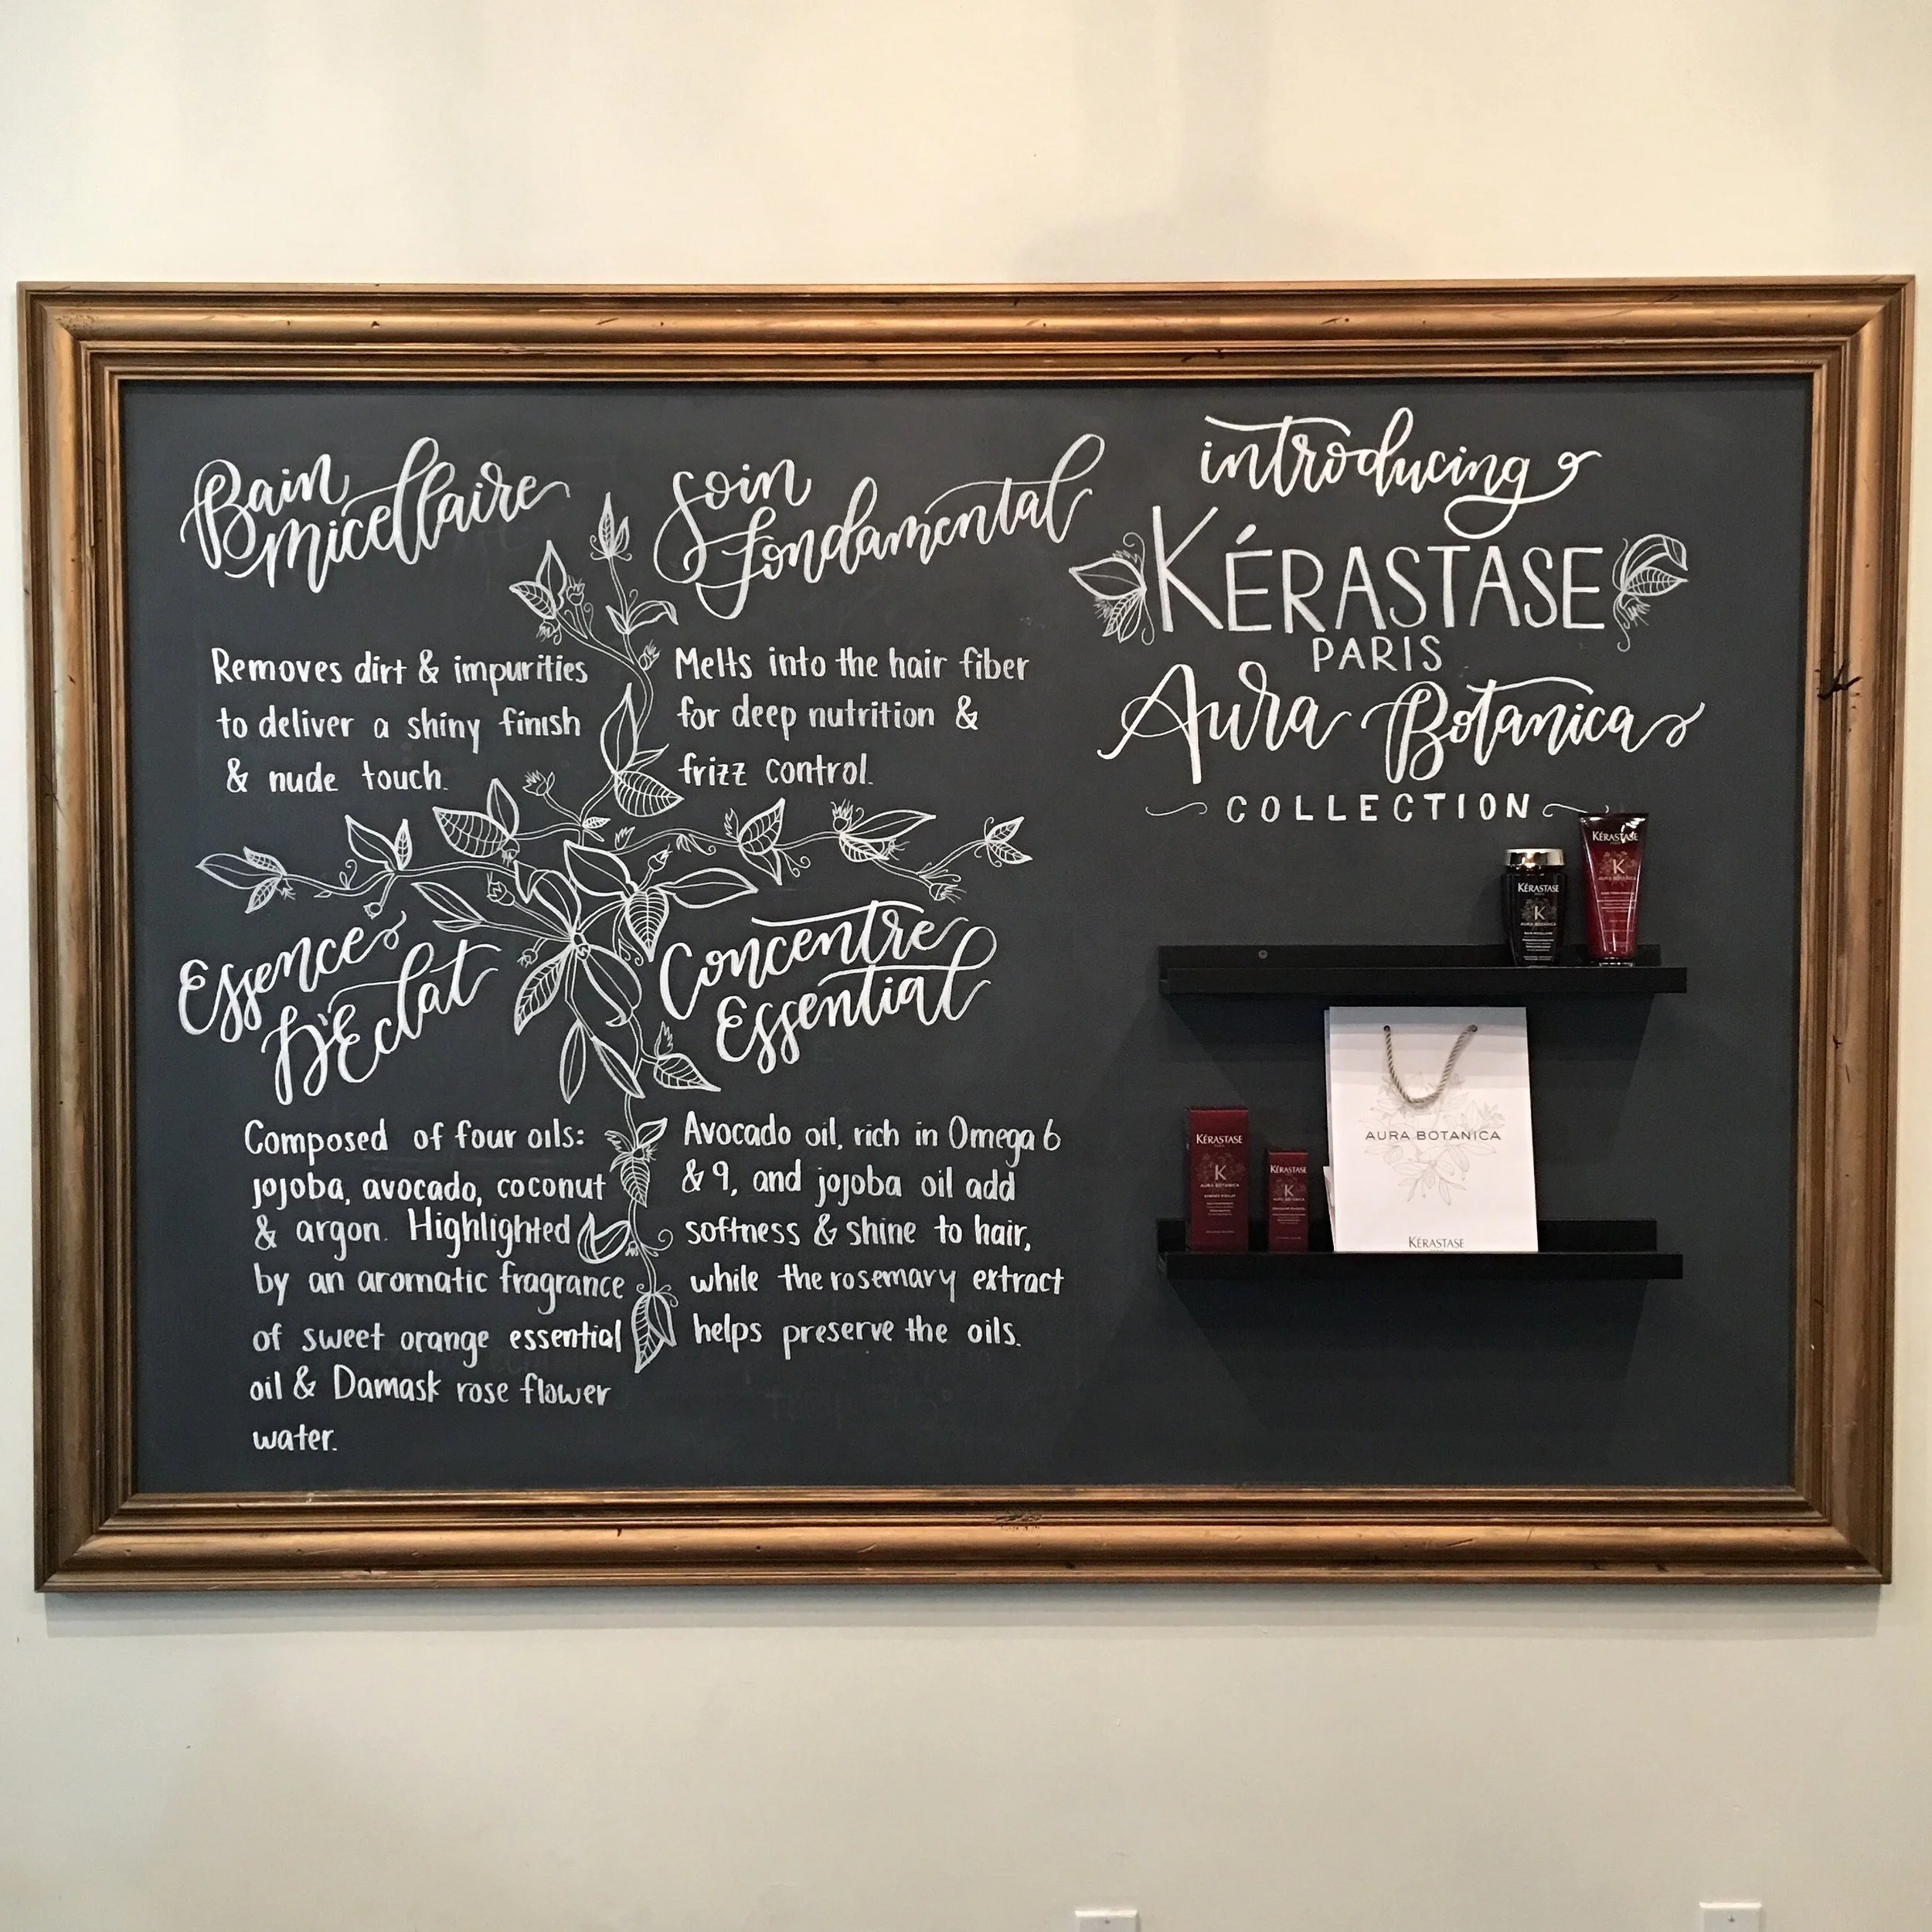 Bain
Micellaire
Removes dirt & impurities
to deliver a shiny finish
& nude touch.
Soin
fondamental
Melts into the hair fiber
for deep nutrition &
frizz control.
Essence
D'Eclat
Composed of four oils:
jojoba, avocado, coconut
& argon. Highlighted
by an aromatic fragrance
of sweet orange essential
oil & Damask rose flower
water.
Concentre
Essential
Avocado oil, rich in Omega 6
& 9, and jojoba oil add
softness & shine to hair,
while the rosemary extract
helps preserve the oils.
introducing
KÉRASTASE
PARIS
Aura Botanica
COLLECTION
KÉRASTASE
K
AURA BOTANICA
KÉRASTASE
K
AURA BOTANICA
KÉRASTASE
K
AURA BOTANICA
KÉRASTASE
K
AURA BOTANICA
AURA BOTANICA
KÉRASTASE